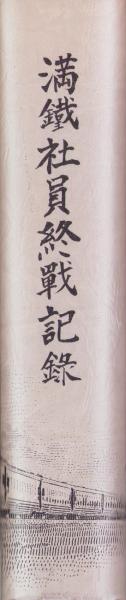 満鐵社員終戰記錄